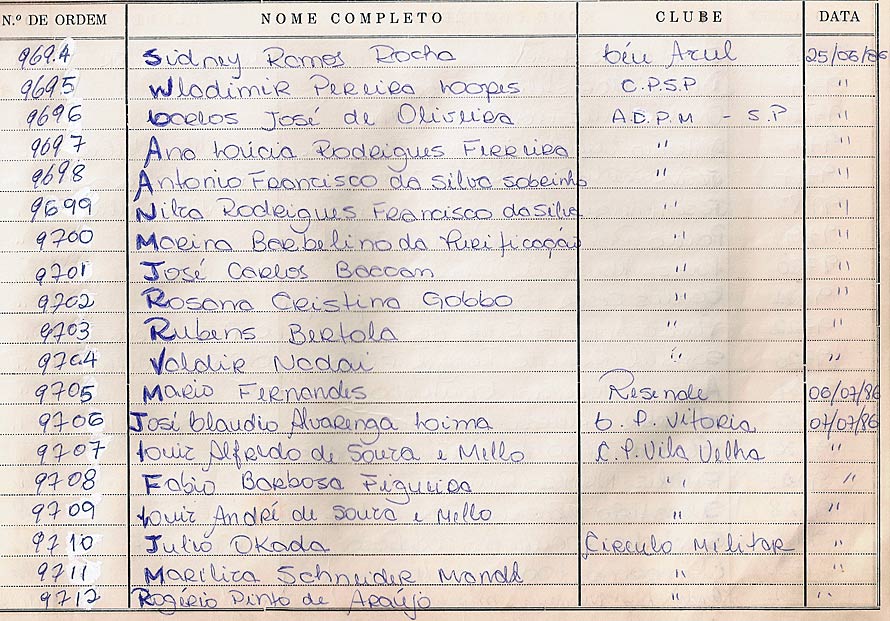 N.º DE ORDEM NOME COMPLETO CLUBE DATA
9694 Sidney Ramos Rocha Céu Azul 25/06/86
9695 Wladimir Pereira Lopes C.P.S.P "
9696 Carlos José de Oliveira A.D.P.M - S.P "
9697 Ana Lúcia Rodrigues Ferreira " "
9698 Antonio Francisco da Silva Sobrinho " "
9699 Nilza Rodrigues Francisco da Silva " "
9700 Marina Barbelino da Purificação " "
9701 José Carlos Baccan " "
9702 Rosana Cristina Gobbo " "
9703 Rubens Bertola " "
9704 Valdir Nadai " "
9705 Mario Fernandes Resende 06/07/86
9706 José Claudio Alvarenga Lima C. P. Vitoria 07/07/86
9707 Luiz Alfredo de Souza e Mello C. P. Vila Velha "
9708 Fabio Barbosa Figueira " "
9709 Luiz André de Souza e Mello " "
9710 Julio Okada Circulo Militar "
9711 Mariliza Schneider " "
9712 Rogério Pinto de Araújo " "